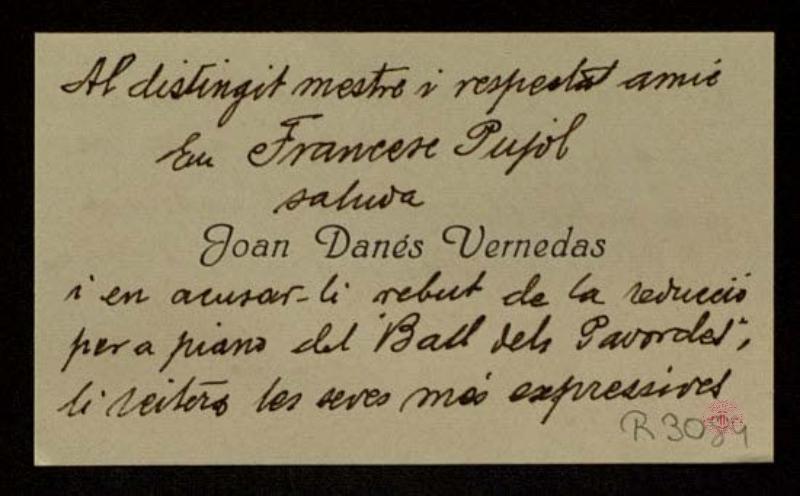 Al distingit mestre i respectat amic
En Francesc Pujol
saluda
Joan Danés Vernedas
i en acusar-li rebut de la reducció
per a piano del "Ball dels Pavordes",
li reitera les seves més expressives
R 3084